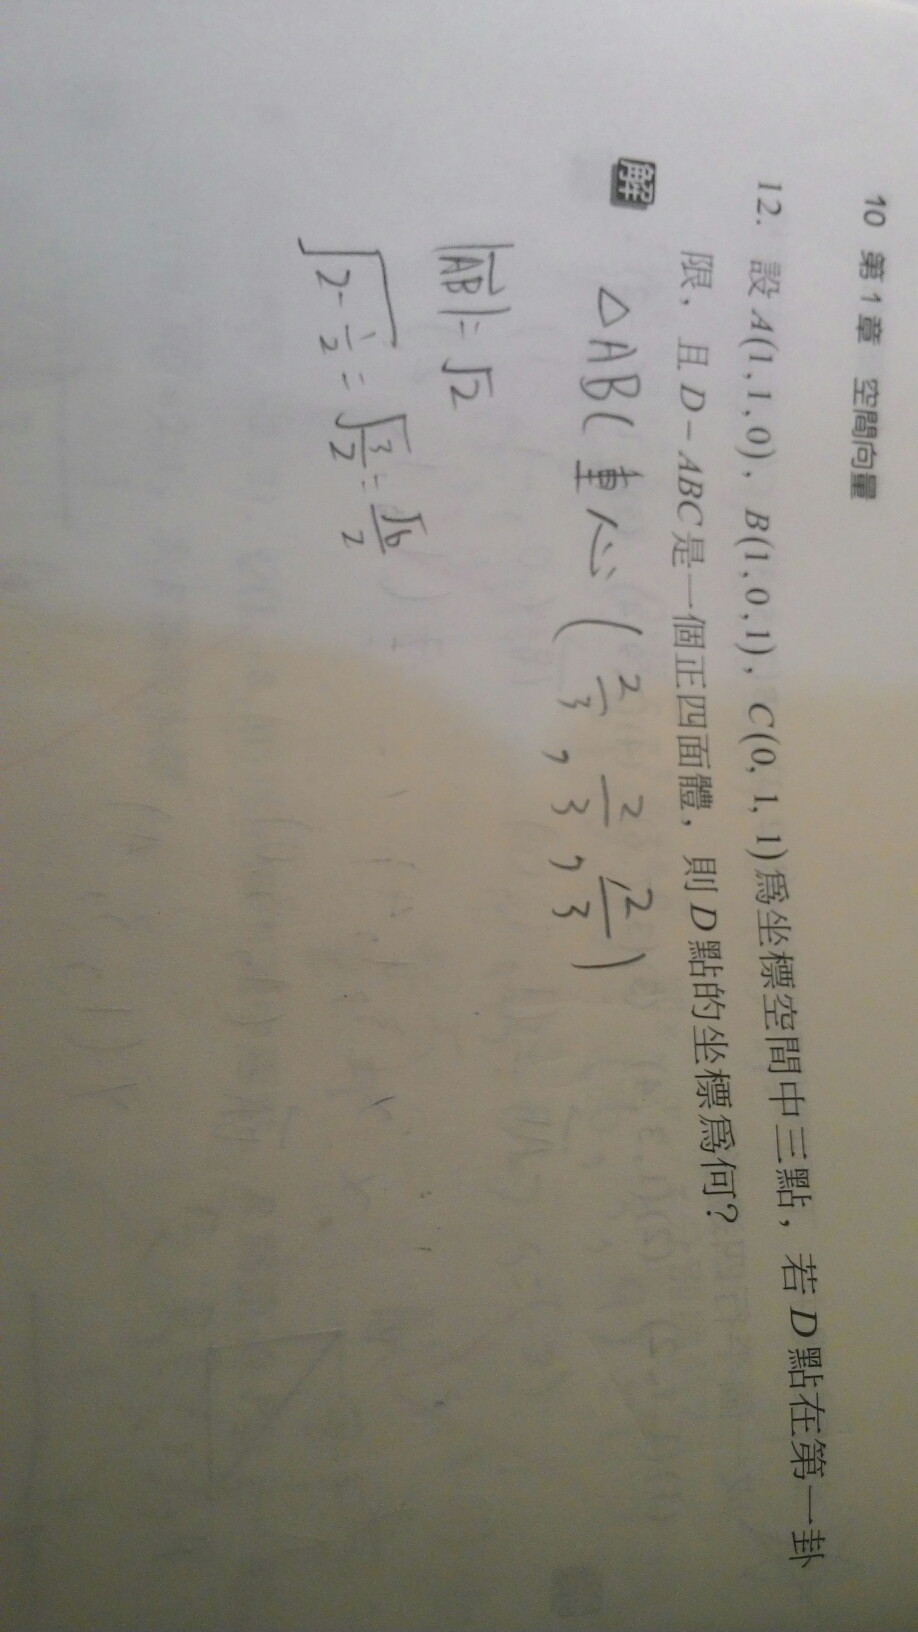 10 第1章 空間向量
12. 設A(1,1,0)、B(1,0,1)、C(0,1,1)爲坐標空間中三點，若D點在第一卦
限，且D-ABC是一個正四面體，則D點的坐標爲何？
解
△ABC重心(2/3, 2/3, 2/3)
|AB|=√2
√(2-1/2)=√(3/2)=√6/2